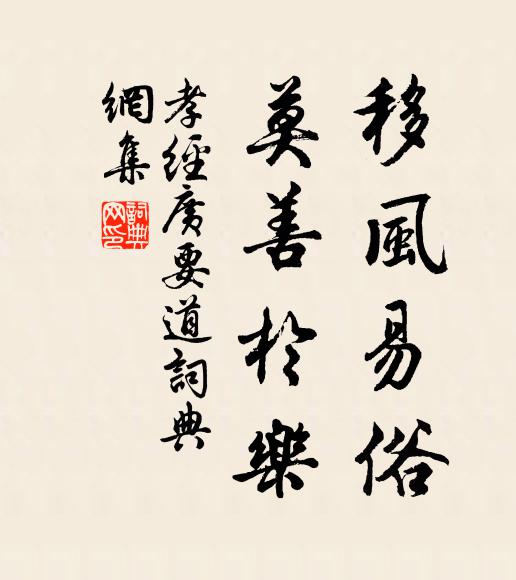 移風易俗
莫善於樂
孝經廣要道詞典
網集
詞典網印